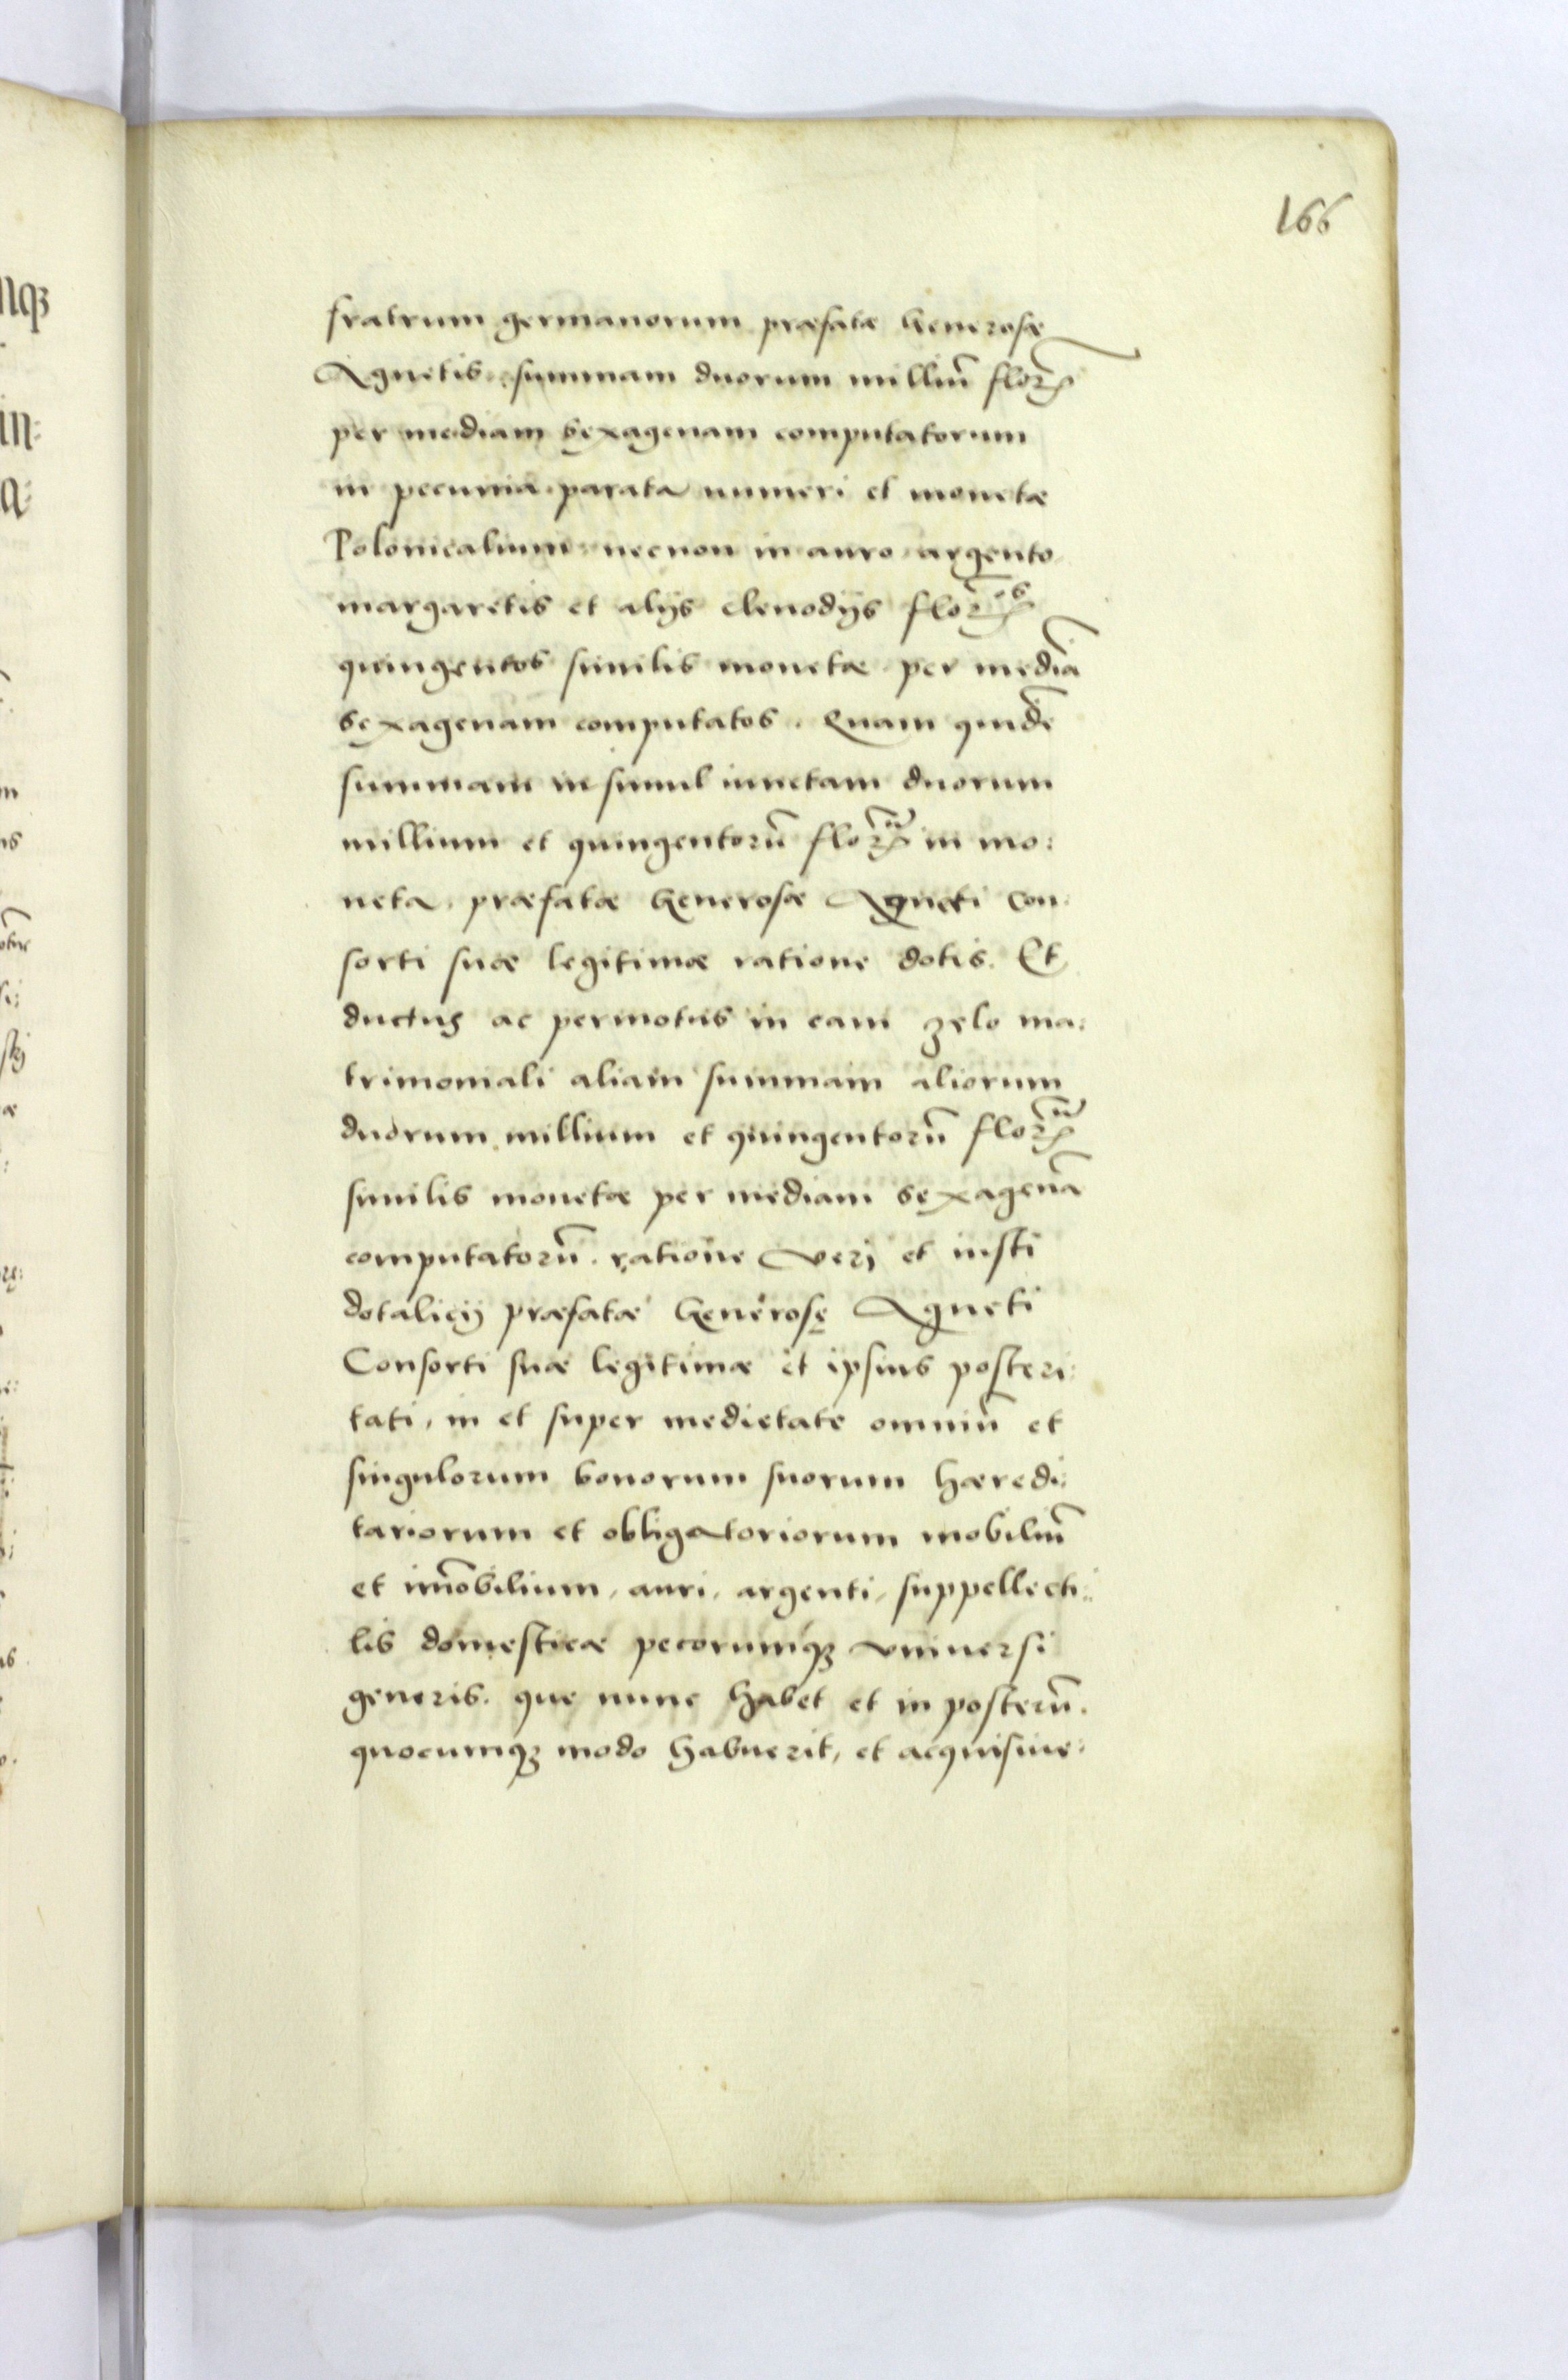 166
fratrum germanorum præfatæ Generosæ
Agnetis summam duorum milliū flor
per mediam sexagenam computatorum
in pecunia parata numeri et monetæ
Polonicalium necnon in auro argento
margaretis et alijs clenodijs flor̄es
quingentos similis monetæ per mediā
sexagenam computatos. Quam quidē
summam insimul iunctam duorum
millium et quingentorū flor̄ in mo:
neta, præfatæ Generosæ Agneti Con
sorti suæ legitimæ ratione dotis. Et
ductus ac permotus in eam zelo ma:
trimoniali aliam summam aliorum
duorum millium et quingentorū flor̄
similis monetæ per mediam sexagenā
computatorū. ratione veri et iusti
dotalicij præfatæ Generosę Agneti
Consorti suæ legitimæ et ipsius posteri:
tati, in et super medietate omniū et
singulorum bonorum suorum hæredi:
tariorum et obligatoriorum mobiliū
et im̄obilium, auri, argenti, suppellecti:
lis domesticæ pecorumqȝ vniuersi
generis. que nunc habet et in posterū.
quocumqȝ modo habuerit, et acquisiue: